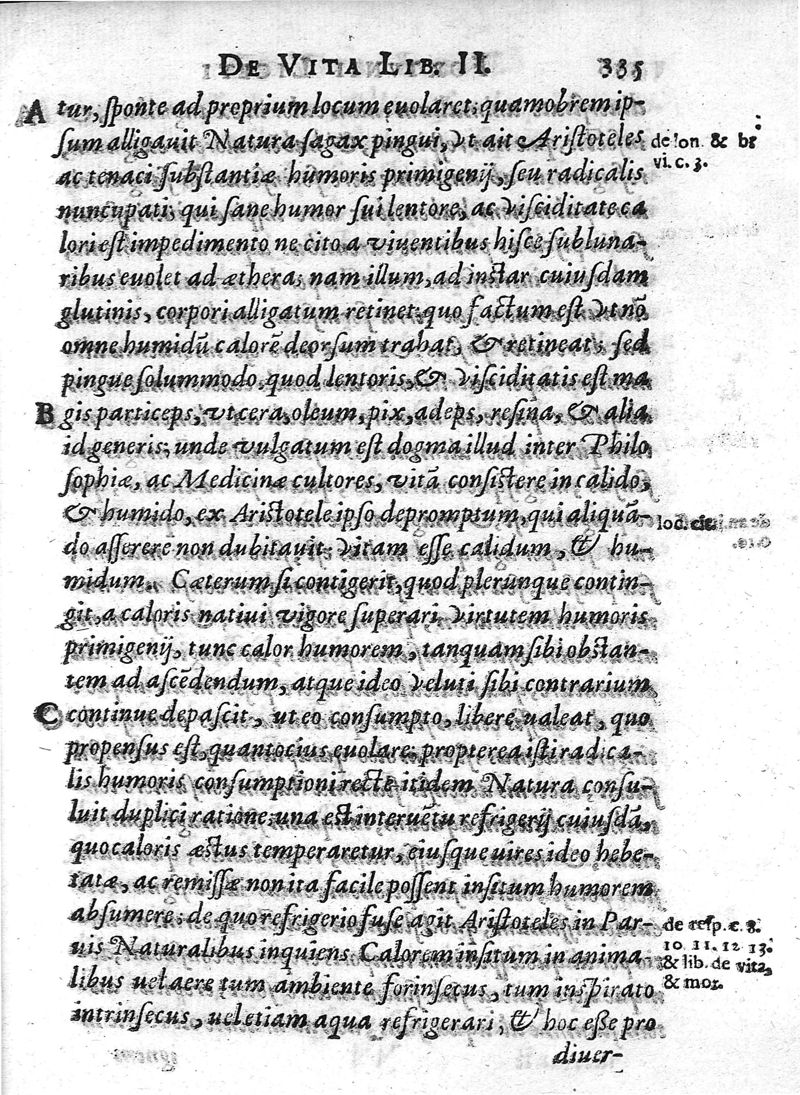 DE VITA LIB. II. 335
A tur, sponte ad proprium locum euolaret; quamobrem ip-
sum alligauit Natura sagax pingui, vt ait Aristoteles
de lon. & br
vi. c. 3.
ac tenaci substantiæ humoris primigenij, seu radicalis
nuncupati; qui sane humor sui lentore, ac visciditate ca
lori est impedimento ne cito a viuentibus hisce subluna-
ribus euolet ad æthera; nam illum, ad instar cuiusdam
glutinis, corpori alligatum retinet: quo factum est vt nō
omne humidū calorē deorsum trahat, & retineat, sed
pingue solummodo, quod lentoris, & visciditatis est ma
B gis particeps, vt cera, oleum, pix, adeps, resina, & alia
id generis; unde vulgatum est dogma illud inter Philo
sophiæ, ac Medicinæ cultores, vitā consistere in calido,
& humido, ex Aristotele ipso depromptum, qui aliquā-
loc. cit.
do asserere non dubitauit: vitam esse calidum, & hu-
midum. Cæterum si contigerit, quod plerunque contin-
git, a caloris natiui vigore superari virtutem humoris
primigenij, tunc calor humorem, tanquam sibi obstan-
tem ad ascēdendum, atque ideo veluti sibi contrarium
C continue depascit, ut eo consumpto, libere ualeat, quo
propensus est, quantocius euolare: propterea isti radica-
lis humoris consumptioni recte itidem Natura consu-
luit duplici ratione; una est interuētu refrigerij cuiusdā,
quo caloris æstus temperaretur, eiusque uires ideo hebe-
tatæ, ac remissæ non ita facile possent insitum humorem
absumere: de quo refrigerio fuse agit Aristoteles in Par-
de resp. c. 8.
10. 11. 12. 13.
& lib. de vita,
& mor.
uis Naturalibus inquiens Calorem insitum in anima-
libus uel aere tum ambiente forinsecus, tum inspirato
intrinsecus, uel etiam aqua refrigerari, & hoc esse pro
diuer-